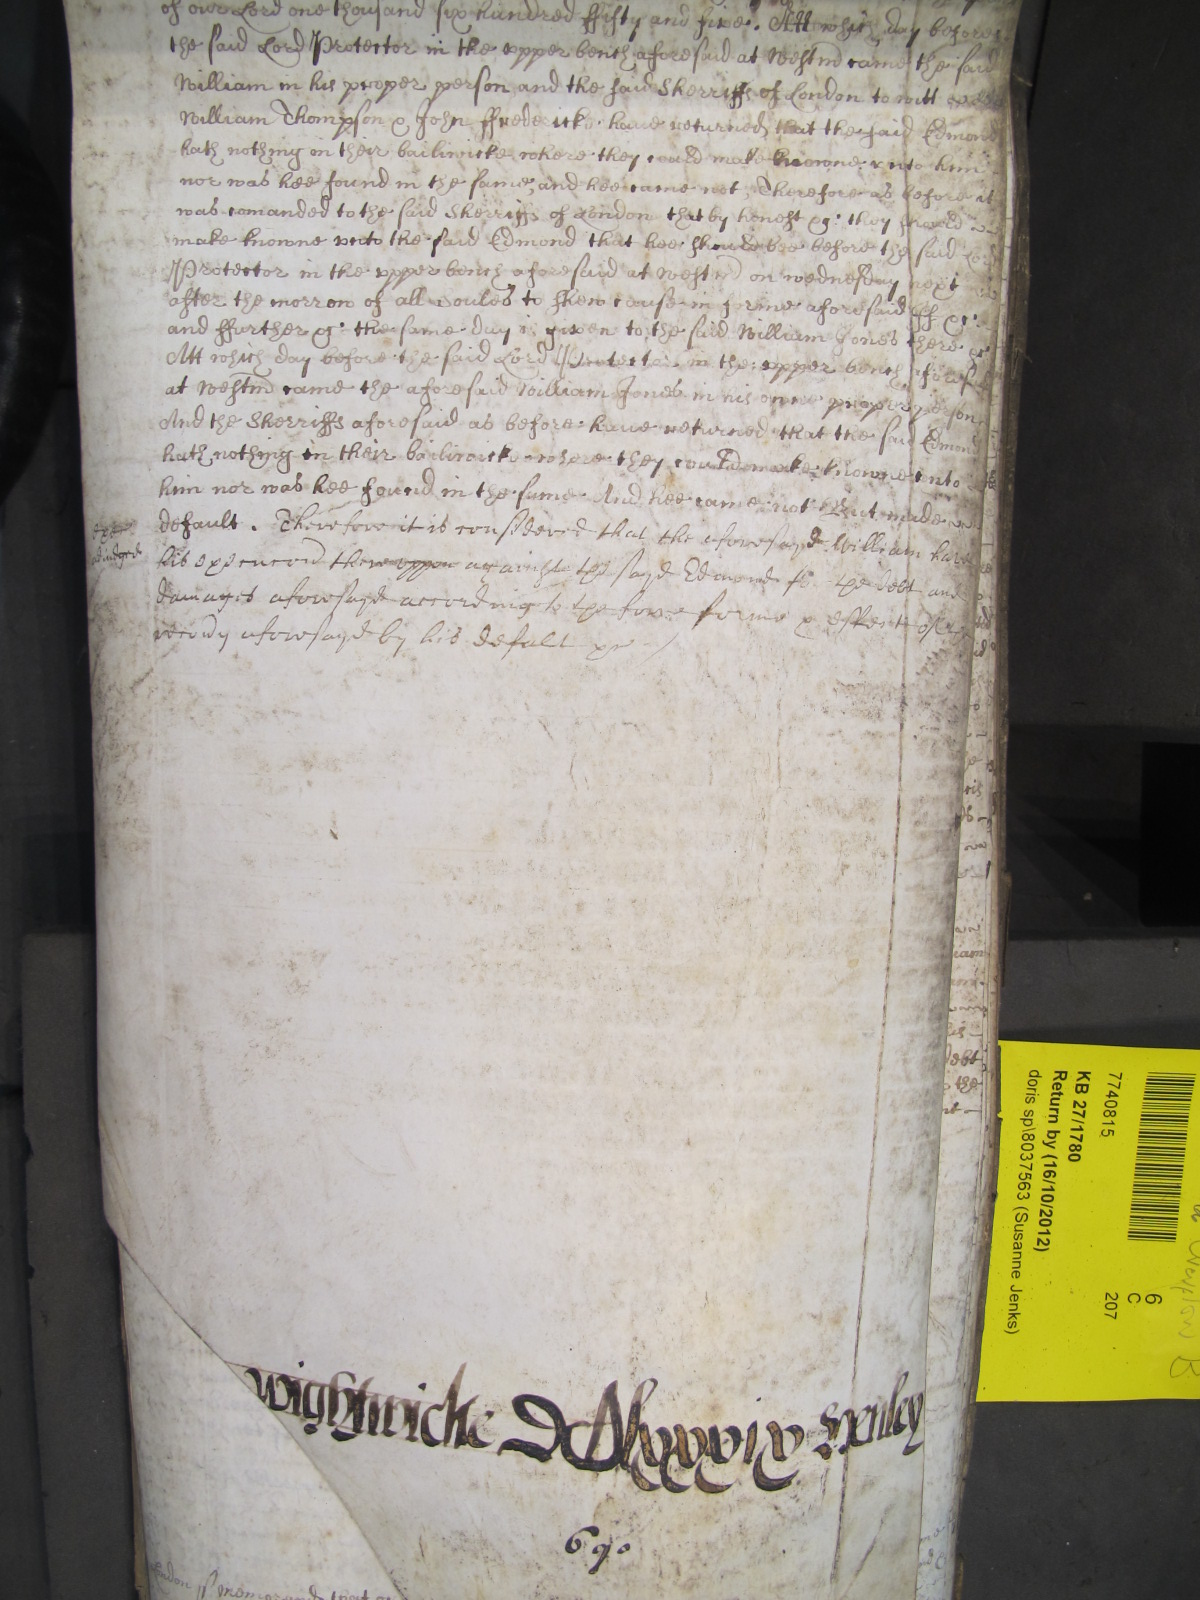 of our Lord one thousand six hundred ffifty and five. Att which day before
the said Lord Protector in the vpper bench aforesaid at Westm̄ came the said
William in his proper person and the said Sherriffs of London to witt
William Thompson & John ffredericke haue returned that the said Edmond
hath nothing in their bailiwicke where they could make knowne vnto him
nor was hee found in the same and hee came not, Therefore as before it
was comanded to the said Sherriffs of London that by honest &c: they should
make knowne vnto the said Edmond that hee should bee before the said Lord
Protector in the vpper bench aforesaid at Westm̄ on wednesday next
after the morrow of all Soules to shew cause in forme aforesaid if &c:
and ffurther &c: the same day is given to the said William Jones there &c
Att which day before the said Lord Protector in the vpper bench aforesd
at Westm̄ came the aforesaid William Jones in his owne proper person
And the Sherriffs aforesaid as before haue returned that the said Edmond
hath nothing in their bailiwicke where they could make knowne vnto
him nor was hee found in the same And hee came not But made
default. Therefore it is considered that the aforesayd William have
adiudged
his execucon thereuppon against the sayd Edmond for the debt and
damages aforesayd according to the force forme & effecte of the
recouy aforesayd by his default &c
Wightwicke Henley
690
London ss memorand that
debt
the
7740815
KB 27/1780
Return by (16/10/2012)
doris sp\8037563 (Susanne Jenks)
6
C
207